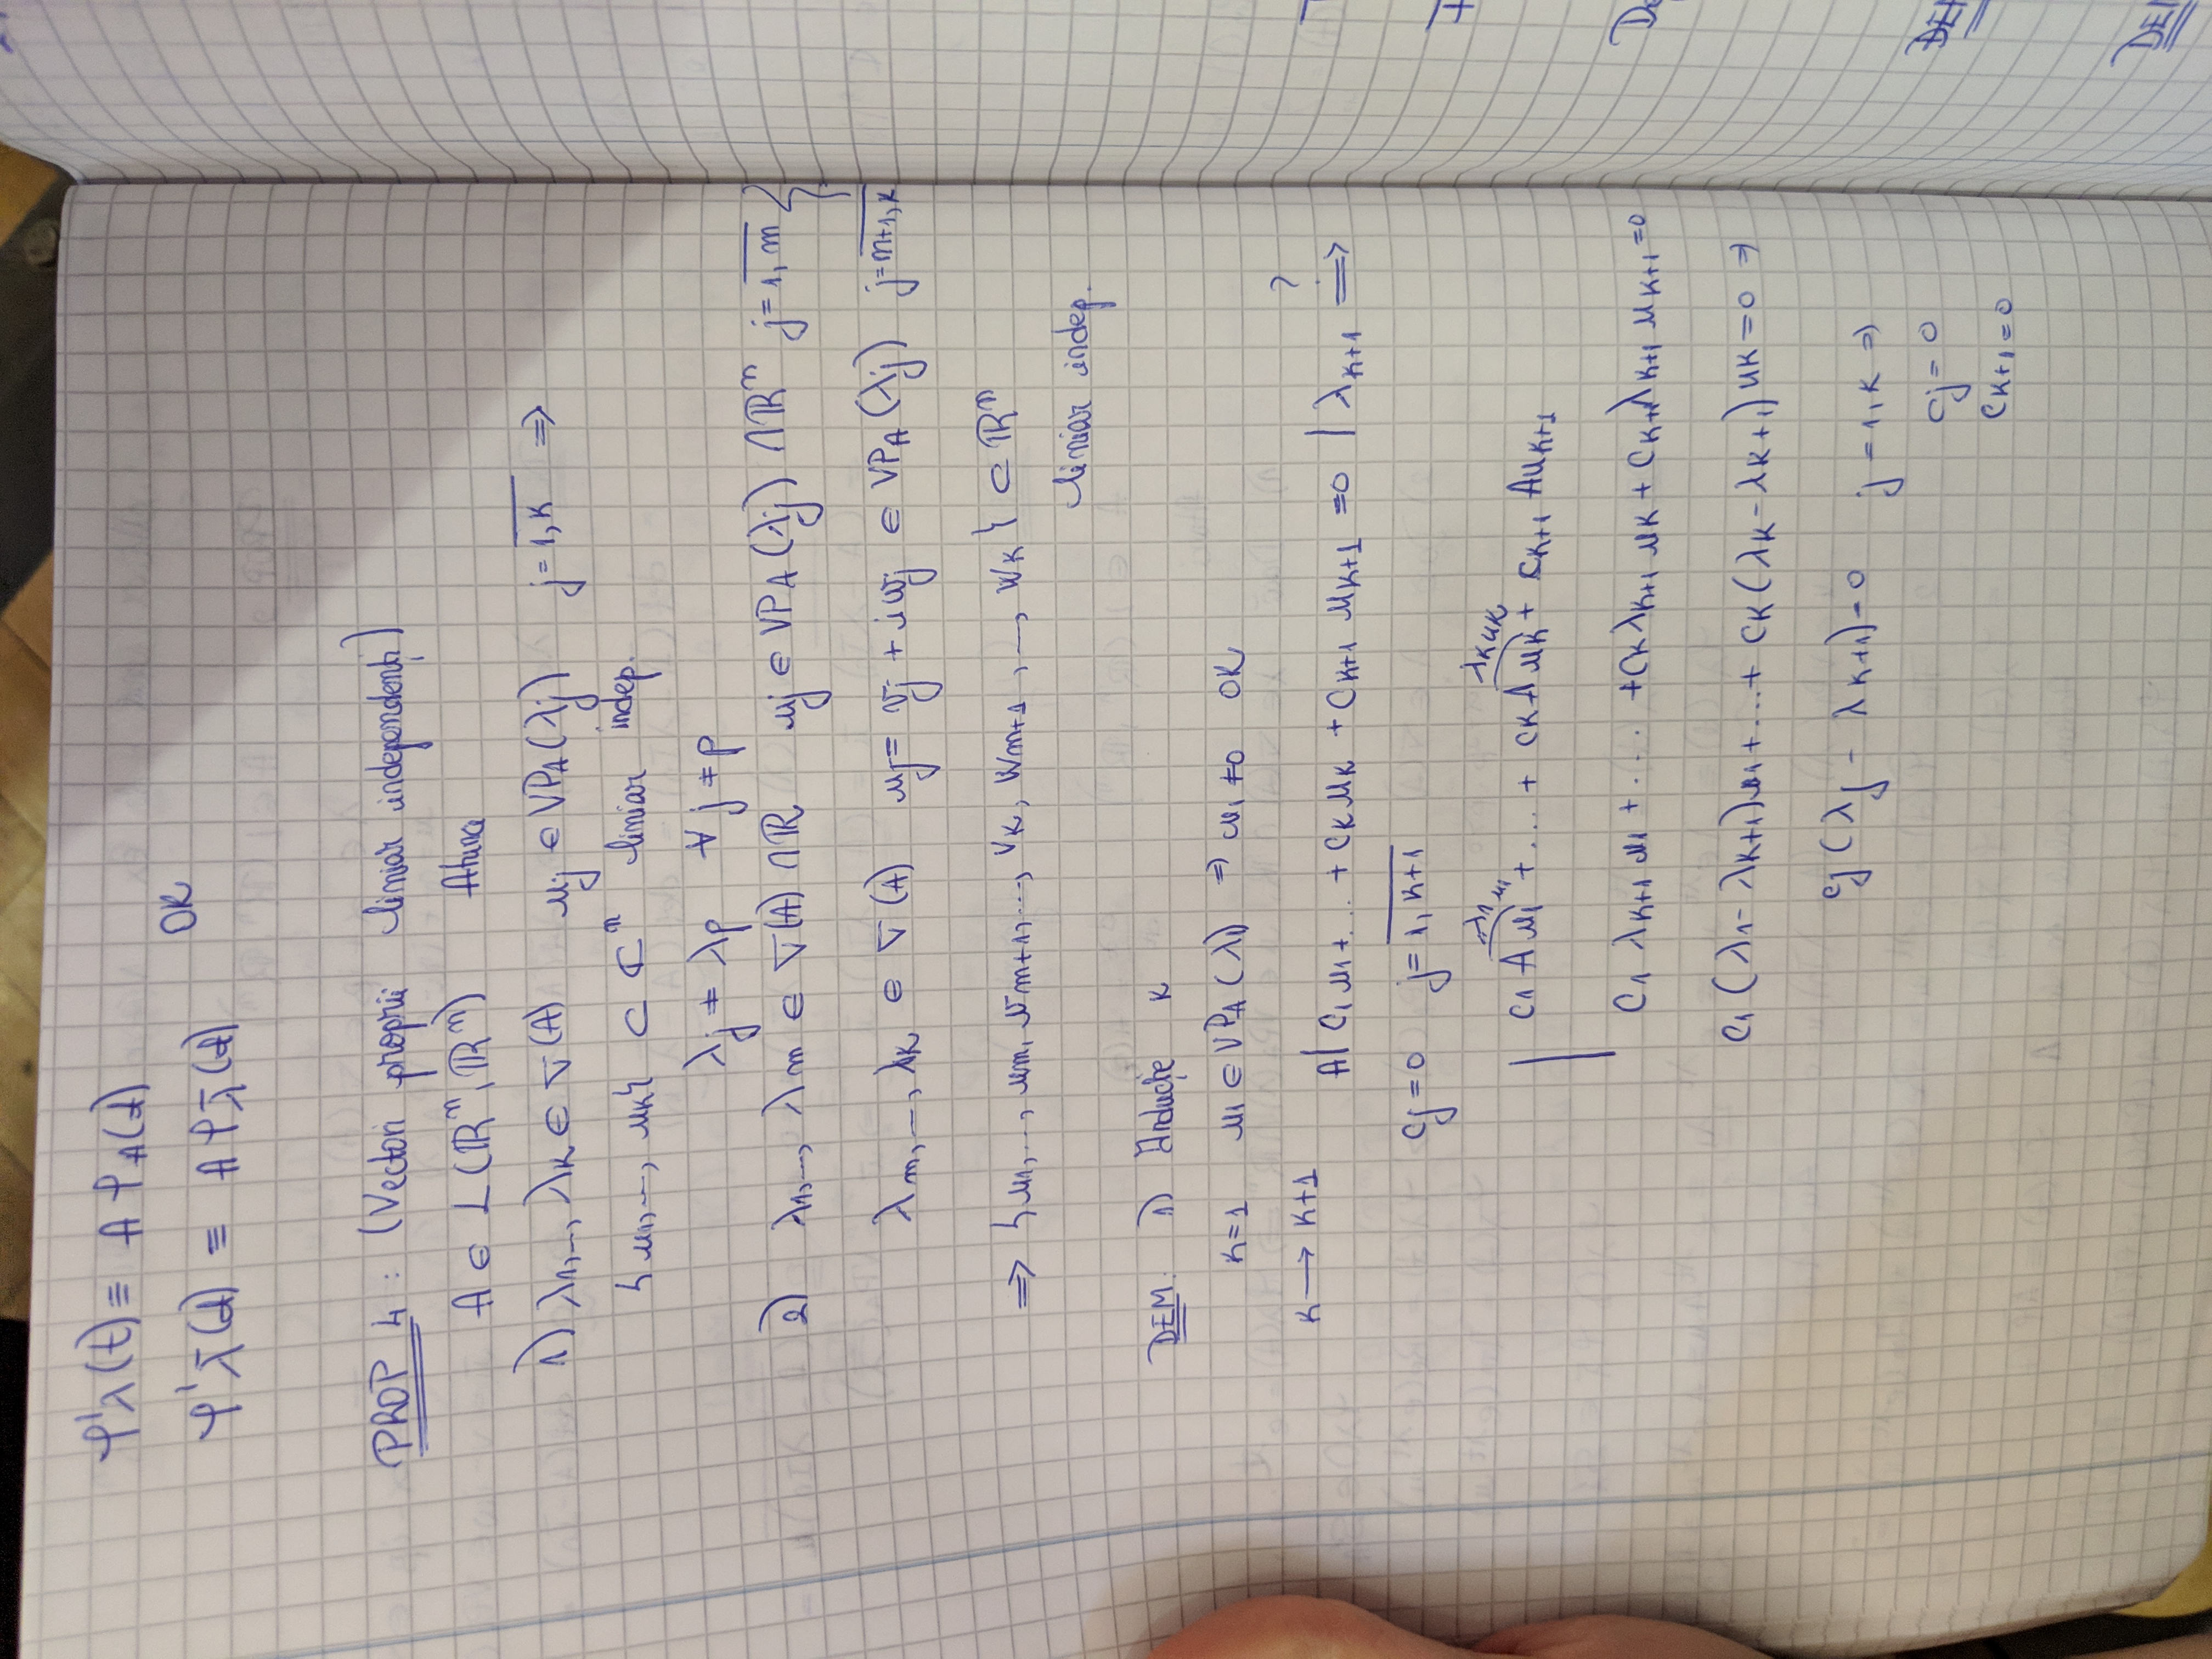 φ'λ(t) ≡ A φ_A(t)
OK
φ'λ̄(t) ≡ A φ_λ̄(t)
PROP 4 : (Vectori proprii liniar independenți)
A ∈ L(ℝⁿ, ℝⁿ) Atunci
1) λ₁,..., λ_K ∈ σ(A) u_j ∈ VP_A(λ_j) j=\overline{1,K} ⇒
{u₁,..., u_K} ⊂ ℂⁿ liniar indep.
λ_j ≠ λ_p ∀ j ≠ p
2) λ₁,..., λ_m ∈ σ(A) ∩ ℝ u_j ∈ VP_A(λ_j) ∩ ℝⁿ j=\overline{1,m} }
λ_m,..., λ_K ∈ σ(A) u_j = v_j + i w_j ∈ VP_A(λ_j) j=\overline{m+1,K}
⇒ {u₁,..., u_m, v_{m+1},..., v_K, w_{m+1},..., w_K} ⊂ ℝⁿ
liniar indep.
DEM. 1) Inducție K
K=1 u₁ ∈ VP_A(λ₁) ⇒ u₁ ≠ 0 OK
K → K+1
A| c₁u₁+...+c_K u_K + c_{K+1} u_{K+1} = 0 | λ_{K+1} ⇒ ?
c_j = 0 j=\overline{1,K+1}
λ₁u₁ λ_K u_K
| c₁ A u₁ +...+ c_K A u_K + c_{K+1} A u_{K+1}
c₁ λ_{K+1} u₁ + .... + c_K λ_{K+1} u_K + c_{K+1} λ_{K+1} u_{K+1} = 0
c₁(λ₁ - λ_{K+1})u₁+...+ c_K(λ_K - λ_{K+1})u_K = 0 ⇒
c_j(λ_j - λ_{K+1}) = 0 j = 1,K ⇒
c_j = 0
c_{K+1} = 0